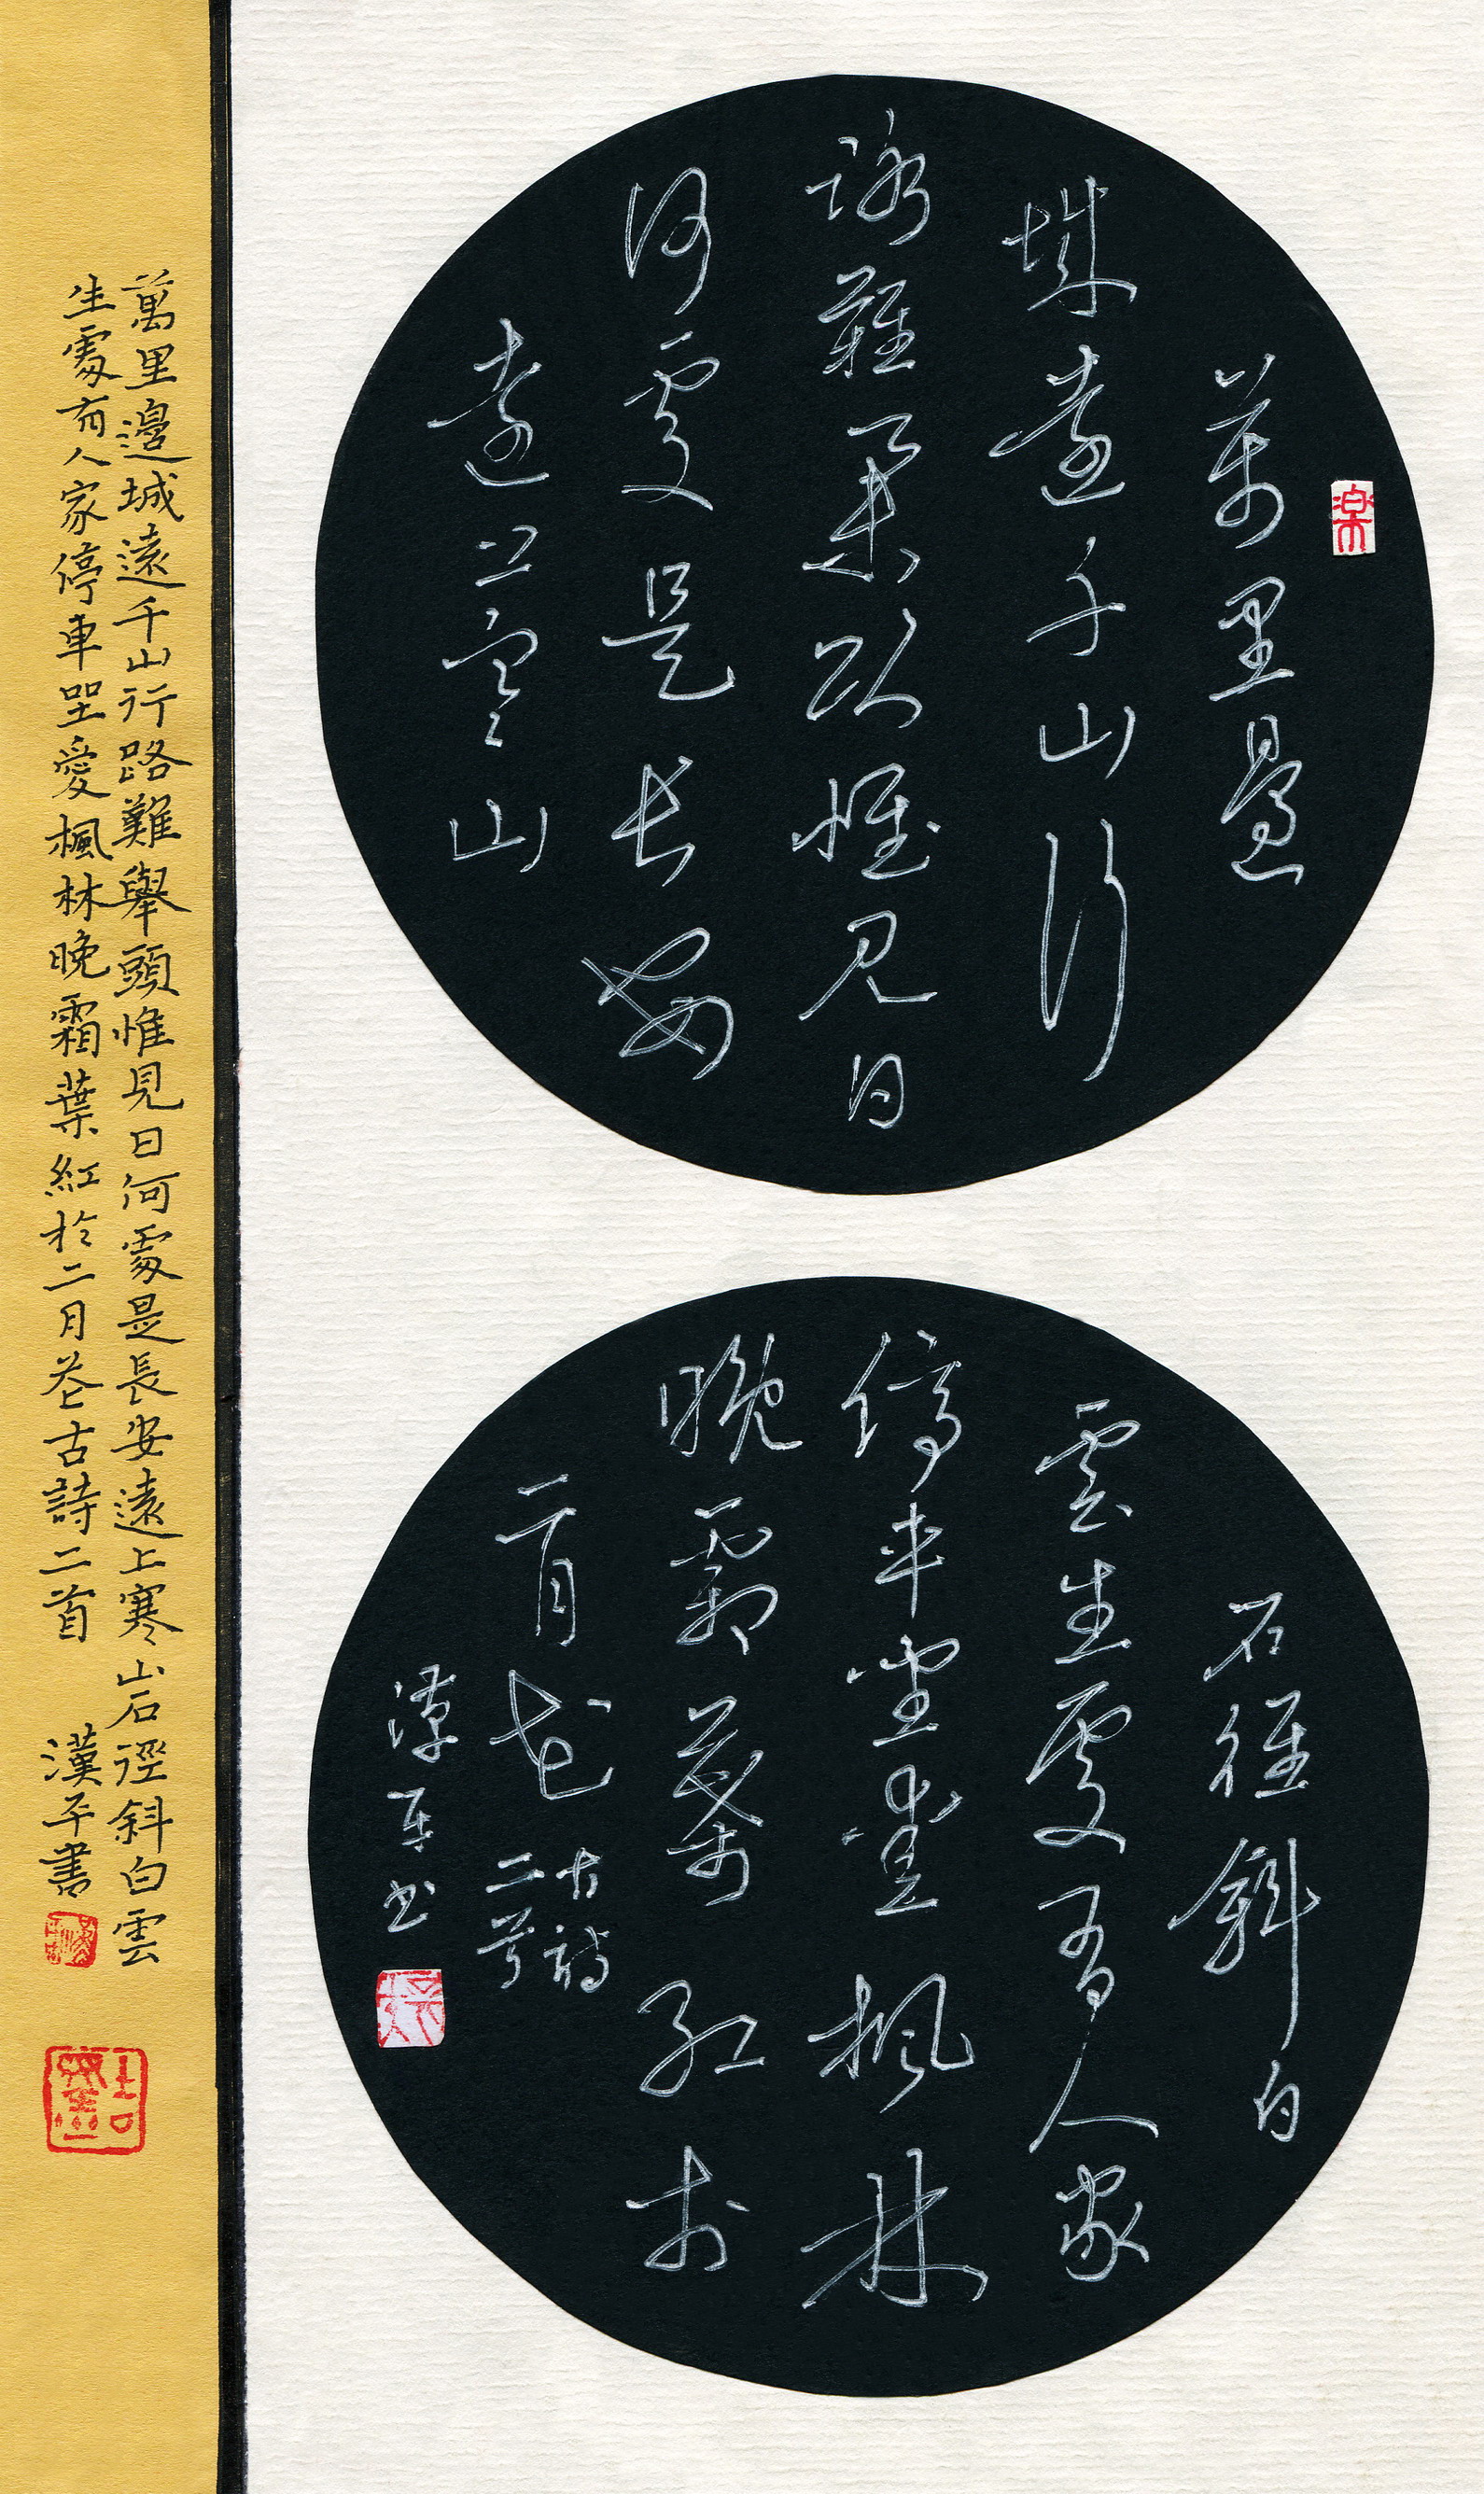 萬里邊
城遠千山行
路難舉頭惟見日
何處是長安
遠上寒山
石徑斜白
雲生處有人家
停車坐愛楓林
晚霜葉紅於
二月花
古詩
二首
漢平书
萬里邊城遠千山行路難舉頭惟見日何處是長安遠上寒山石徑斜白雲
生處有人家停車坐愛楓林晚霜葉紅於二月花古詩二首 漢平書